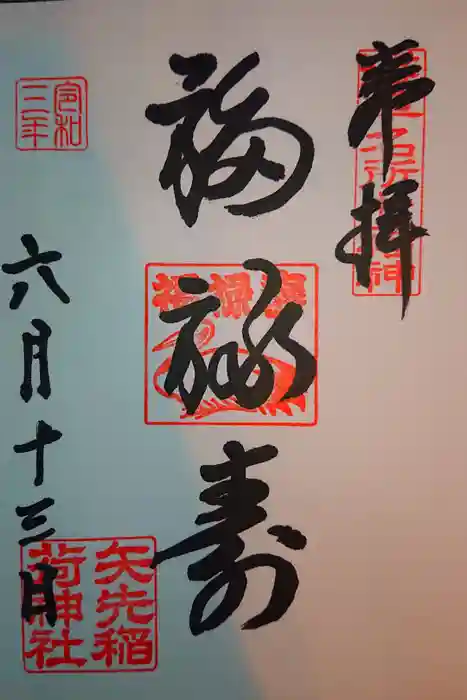 奉拝
福禄寿
福禄寿
令和三年
六月十三日
矢先稲荷神社